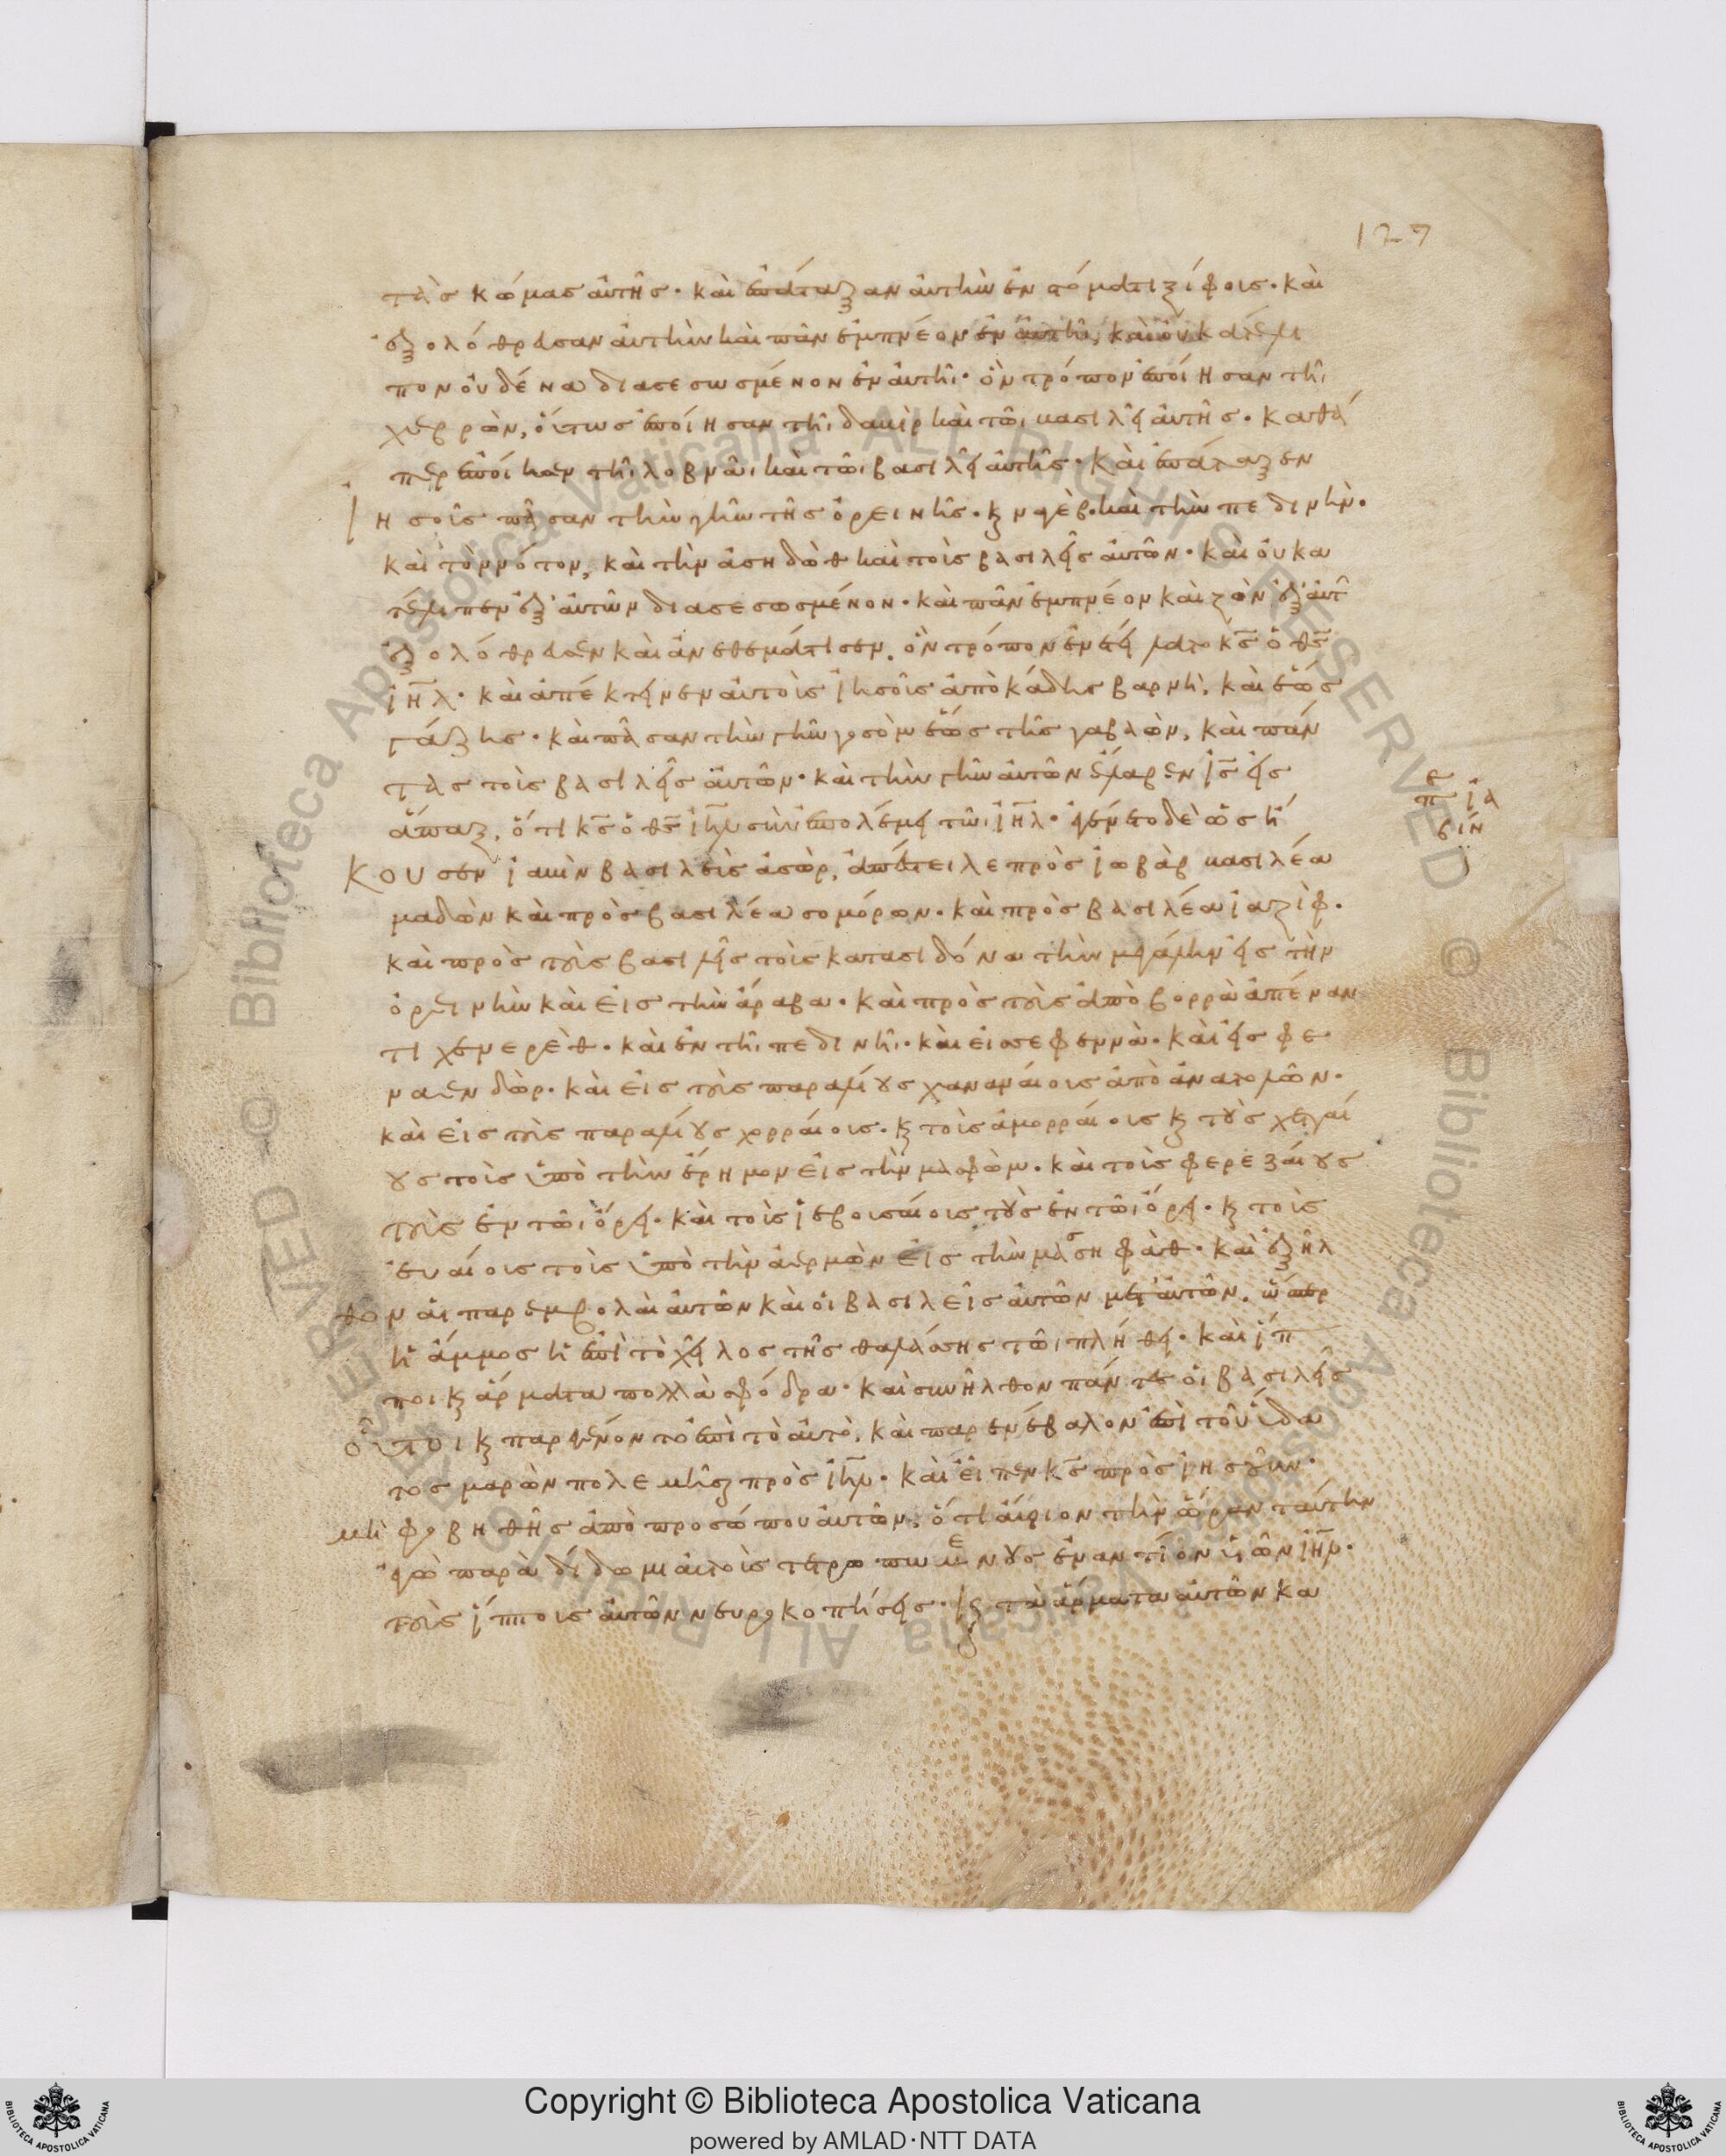 127
τὰς κώμας αὐτῆς· καὶ ἐπάταξαν αὐτὴν ἐν στόματι ξίφους· καὶ
ἐξολόθρευσαν αὐτὴν καὶ πᾶν ἐμπνέον ἐν αὐτῆι, καὶ οὐ κατέλι
πον οὐδένα διασεσωσμένον ἐν αὐτῆι· ὃν τρόπον ἐποίησαν τῆι
χεβρὼν, οὕτως ἐποίησαν τῆι δαβὶρ καὶ τῶι βασιλεῖ αὐτῆς· καθά
περ ἐποίησεν τῆι λοβνᾶι καὶ τῶι βασιλεῖ αὐτῆς· καὶ ἐπάταξεν
ἰησοῦς πᾶσαν τὴν γῆν τῆς ὀρεινῆς· κ ναγὲβ· καὶ τὴν πεδινὴν·
καὶ τὸν νότον, καὶ τὴν ἀσηδὼθ καὶ τοὺς βασιλεῖς αὐτῶν· καὶ οὐ κα
τέλιπεν ἐξ αὐτῶν διασεσωσμένον· καὶ πᾶν ἐμπνέον καὶ ζῶν ἐξ αὐτ
ἐξολόθρευσεν καὶ ἀνεθεμάτισεν, ὃν τρόπον ἐνετείλατο κς ὁ θς
ιηλ· καὶ ἀπέκτεινεν αὐτοὺς ἰησοῦς ἀπὸ κάδης βαρνὴ, καὶ ἕως
γάζης· καὶ πᾶσαν τὴν γῆν γοσὸμ ἕως τῆς γαβαὼν, καὶ πάν
τας τοὺς βασιλεῖς αὐτῶν· καὶ τὴν γῆν αὐτῶν ἔλαβεν ις εἰς
ἅπαξ, ὅτι κς ὁ θς ιηλ συνεπολέμει τῶι ιηλ· ἐγένετο δὲ ὡς ἤ
κουσεν ἰαβὶν βασιλεὺς ἀσὼρ, ἀπέστειλε πρὸς ἰωβὰβ βασιλέα
μαδὼν καὶ πρὸς βασιλέα σομόρων· καὶ πρὸς βασιλέα ἰαζὶφ·
καὶ πρὸς τοὺς βασιλεῖς τοὺς κατα σιδόνα τὴν μεγάλην εἰς τὴν
ὀρεινὴν καὶ εἰς τὴν ἄραβα· καὶ πρὸς τοὺς ἀπὸ βορρὰ ἀπέναν
τι χενερὲθ· καὶ ἐν τῆι πεδινῆι· καὶ εἰς σεφεννὰ· καὶ εἰς φε
ναεν δὼρ· καὶ εἰς τοὺς παραλίους χαναναίους ἀπὸ ἀνατολῶν·
καὶ εἰς τοὺς παραλίους χορραίους· κ τοὺς ἀμορραίους κ τοὺς χετταί
ους τοὺς ὑπὸ τὴν ἔρημον εἰς τὴν μασφὼμ· καὶ τοὺς φερεζαίους
τοὺς ἐν τῶι ὄρει· καὶ τοὺς ἰεβουσαίους τοὺς ἐν τῶι ὄρει· κ τοὺς
εὐαίους τοὺς ὑπὸ τὴν ἀερμὼν εἰς τὴν μασσηφὰθ· καὶ ἐξῆλ
θον αἱ παρεμβολαὶ αὐτῶν καὶ οἱ βασιλεῖς αὐτῶν μετ αὐτῶν, ὥσπερ
ἡ ἄμμος ἡ ἐπὶ τὸ χεῖλος τῆς θαλάσσης τῶι πλήθει· καὶ ἵπ
ποι κ ἅρματα πολλὰ σφόδρα· καὶ συνῆλθον πάντες οἱ βασιλεῖς
οὗτοι κ παρεγένοντο ἐπὶ τὸ αὐτὸ, καὶ παρενέβαλον ἐπὶ τοῦ ὕδα
τος μαρὼν πολεμῆσαι πρὸς ιηλ· καὶ εἶπεν κς πρὸς ἰησοῦν·
μὴ φοβηθῆς ἀπὸ προσώπου αὐτῶν, ὅτι αὔριον τὴν ὥραν ταύτην
ἐγὼ παραδίδωμι αὐτοὺς τετροπωμένους ἐναντίον υἱῶν ιηλ·
τοὺς ἵππους αὐτῶν νευροκοπήσεις· κ τὰ ἅρματα αὐτῶν κα